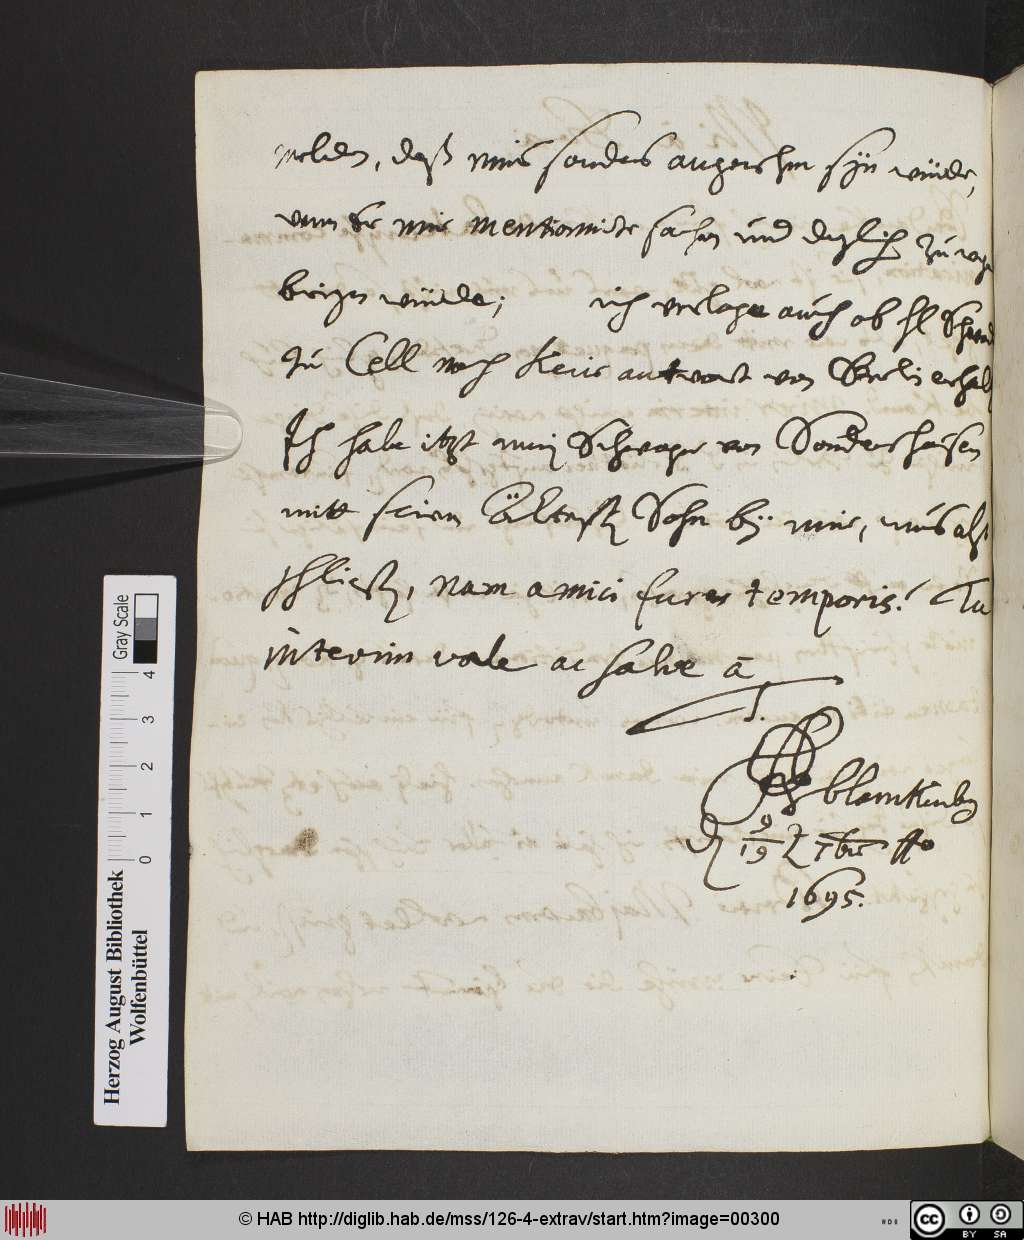 melden, daß mirs sonders angenehm sÿn würde,
wann Er mir mentionirte sachen und dergleich zu wege
bringen würde; ich verlange auch ob H
zu Cell noch Keine antwort von Berlin erhalt
Ich habe itzt mein Schwager von Sondershausen
mitt seinem Ältesten Sohn bÿ mir, mus also
schließen, nam amici fures temporis! Tu
interim vale ac salve à
T.
blanckenb
d 9/19 7br
1695.
Herzog August Bibliothek
Wolfenbüttel
Gray Scale
0 1 2 3 4
© HAB http://diglib.hab.de/mss/126-4-extrav/start.htm?image=00300
cc BY SA